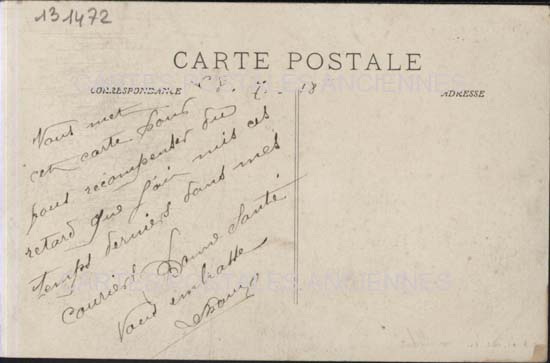 131472
CARTE POSTALE
CARTES POSTALES ANCIENNES
CORRESPONDANCE
ADRESSE
18
Vous met
cet carte pour
vous récompenser du
retard que j'ai mis ces
temps derniers dans mes
couriers Bonne Santé
Vous embrasse
CARTES POSTALES ANCIENNES